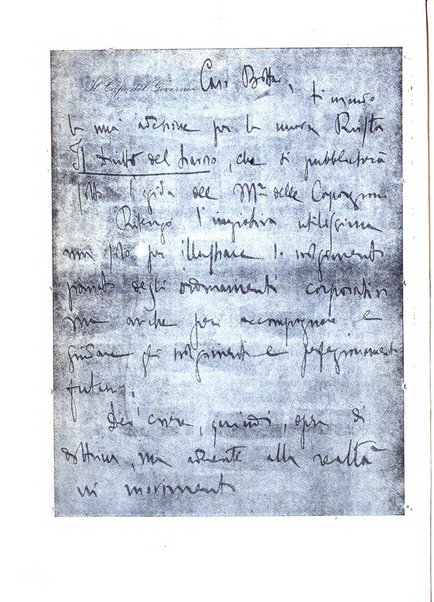 Il Capo del Governo
Caro Bottai,
ti mando
la mia adesione per la nuova Rivista
Il Diritto del Lavoro, che si pubblicherà
sotto l'egida del M.º delle Corporazioni
Ritengo l'iniziativa utilissima
non solo per illustrare lo svolgimento
passato degli ordinamenti corporativi
ma anche per accompagnare e
guidare gli svolgimenti e perfezionamenti
futuri.
Dev'essere, quindi, opera di
dottrina, ma aderente alla realtà
in movimento